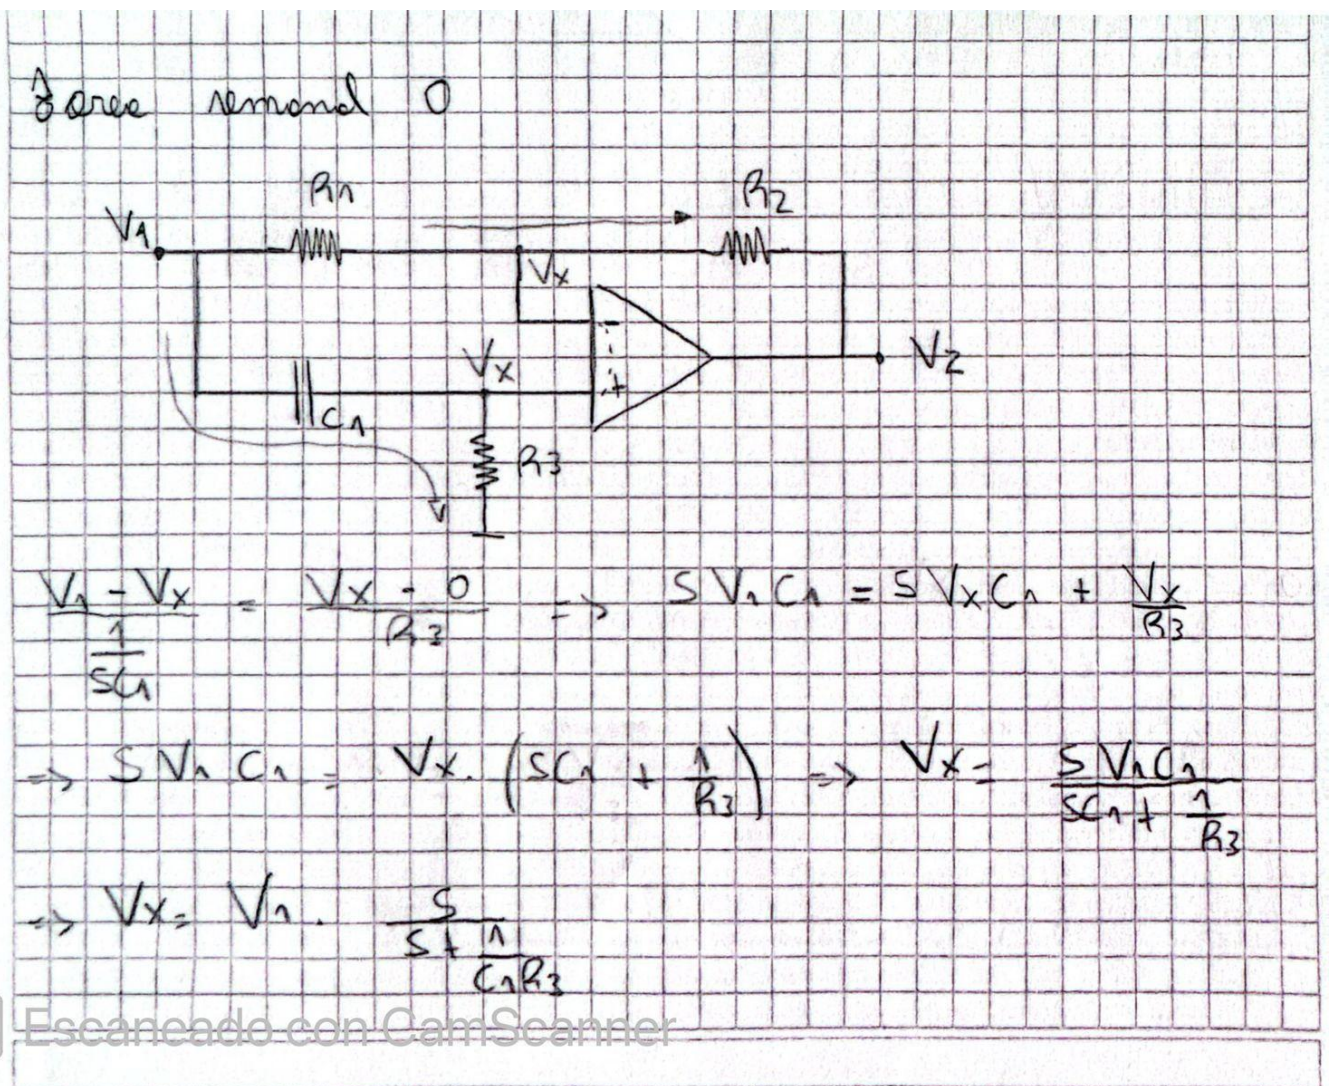 R1 R2
V1
Vx
Vx
V2
-
+
C1
R3
(V1 - Vx) / (1/SC1) = (Vx - 0) / R3 => S V1 C1 = S Vx C1 + Vx/R3
=> S V1 C1 = Vx · (SC1 + 1/R3) => Vx = S V1 C1 / (SC1 + 1/R3)
=> Vx = V1 · S / (S + 1/(C1R3))
Escaneado con CamScanner